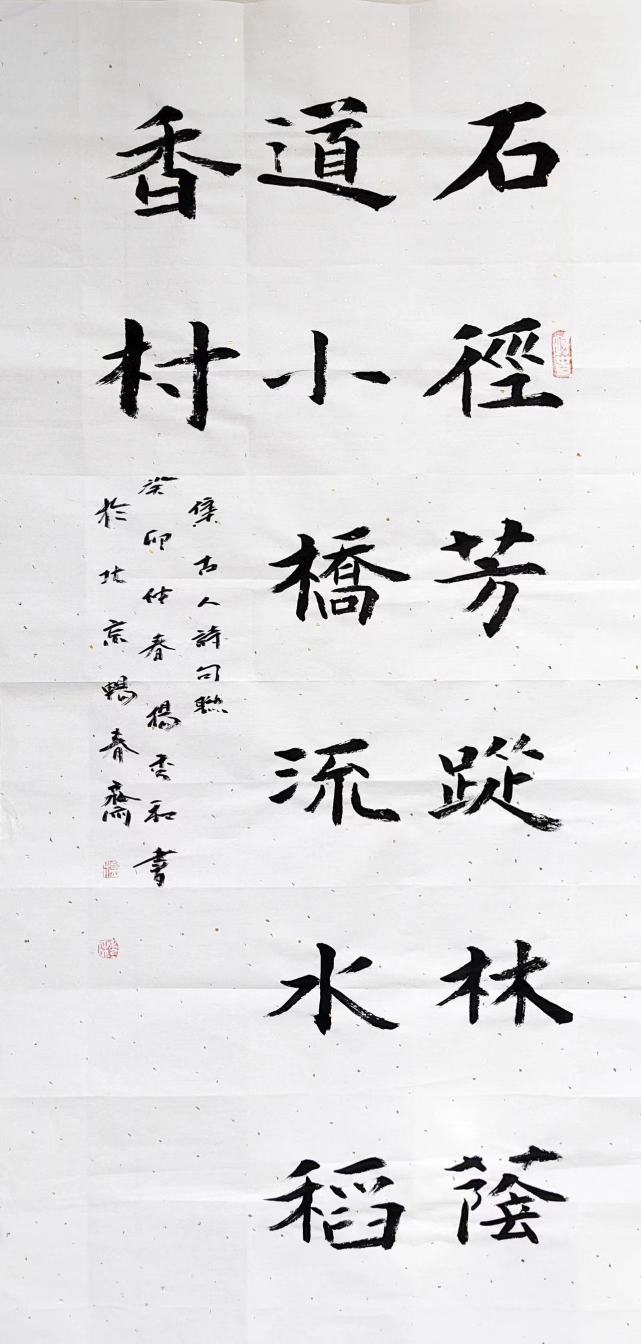 石徑芳蹤林蔭
道小橋流水稻
香村
集古人詩句聯
癸卯仲春楊秀和書
於北京暢春齋